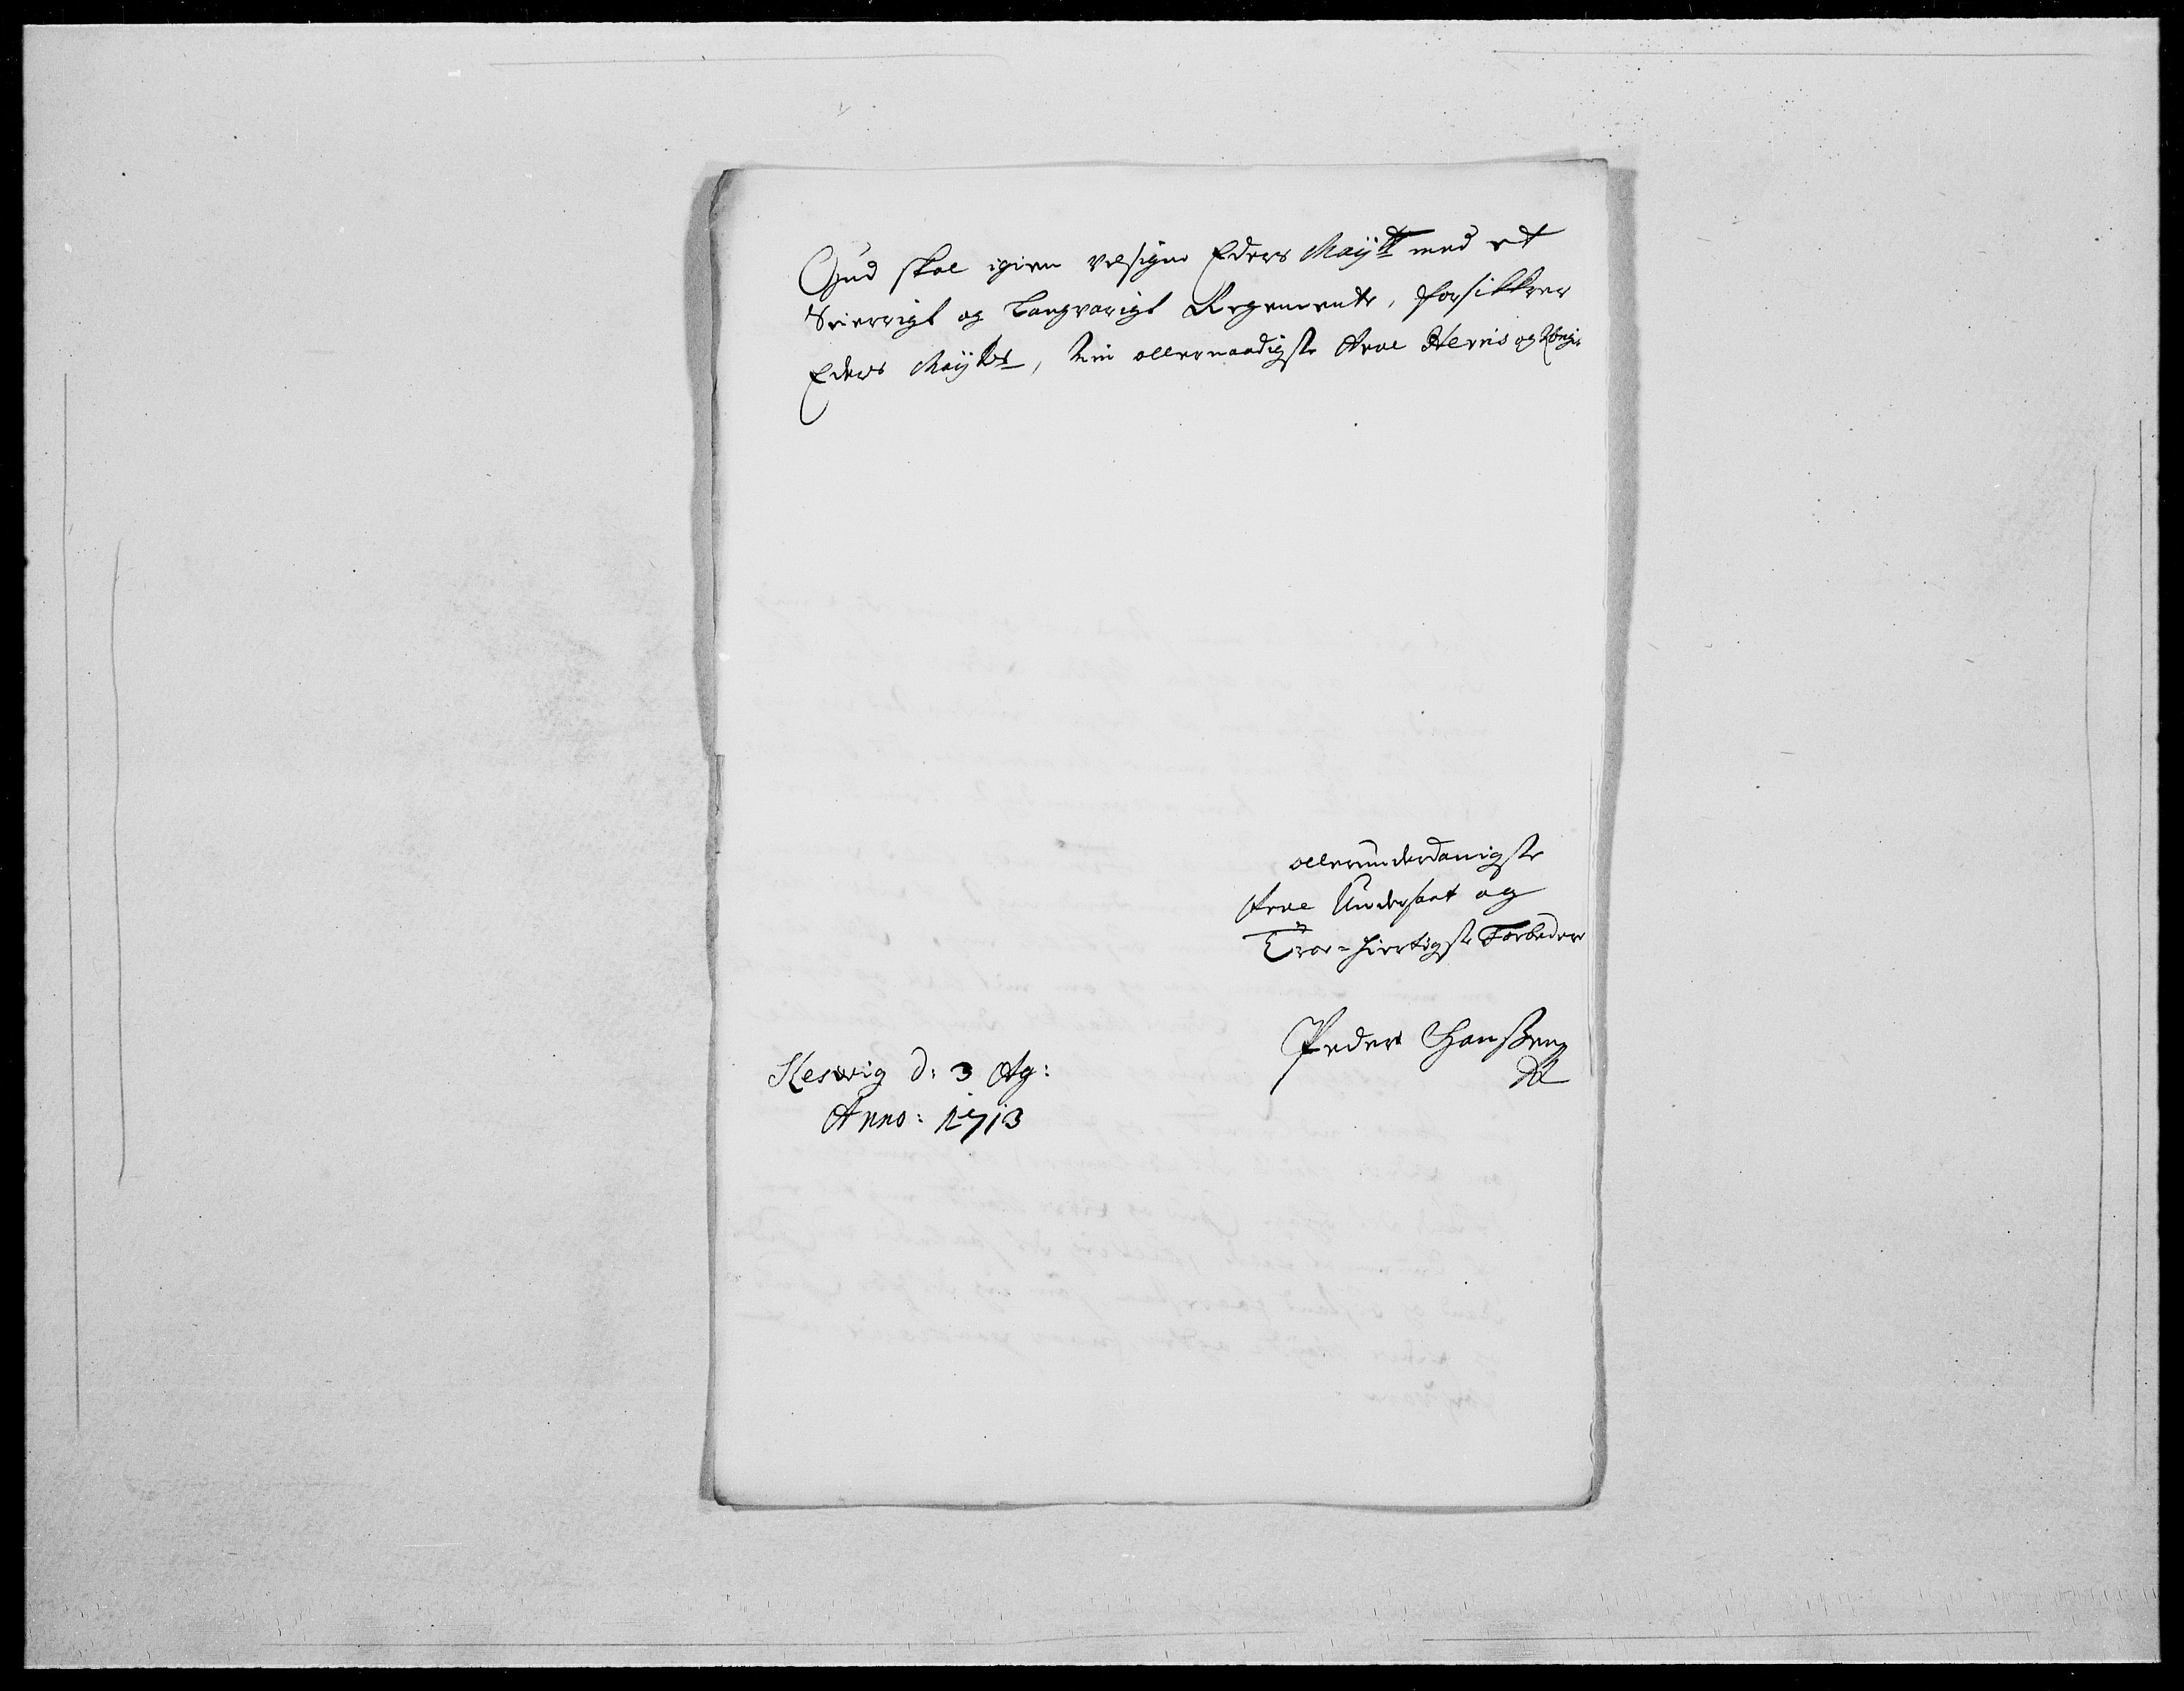 Gud skal igien velsigne Eders Mayt med et
Seierrigt og Langvarigt Regemente, forsikkrer
Eders Mayts, Min allernaadigste Arve Herris og Kongis
allerunderdanigste
Arve Undersaat og
Troe-hiertigste Forbeder
Peder Hanssen
Sleswig d: 3 Ag:
Anno: 1713